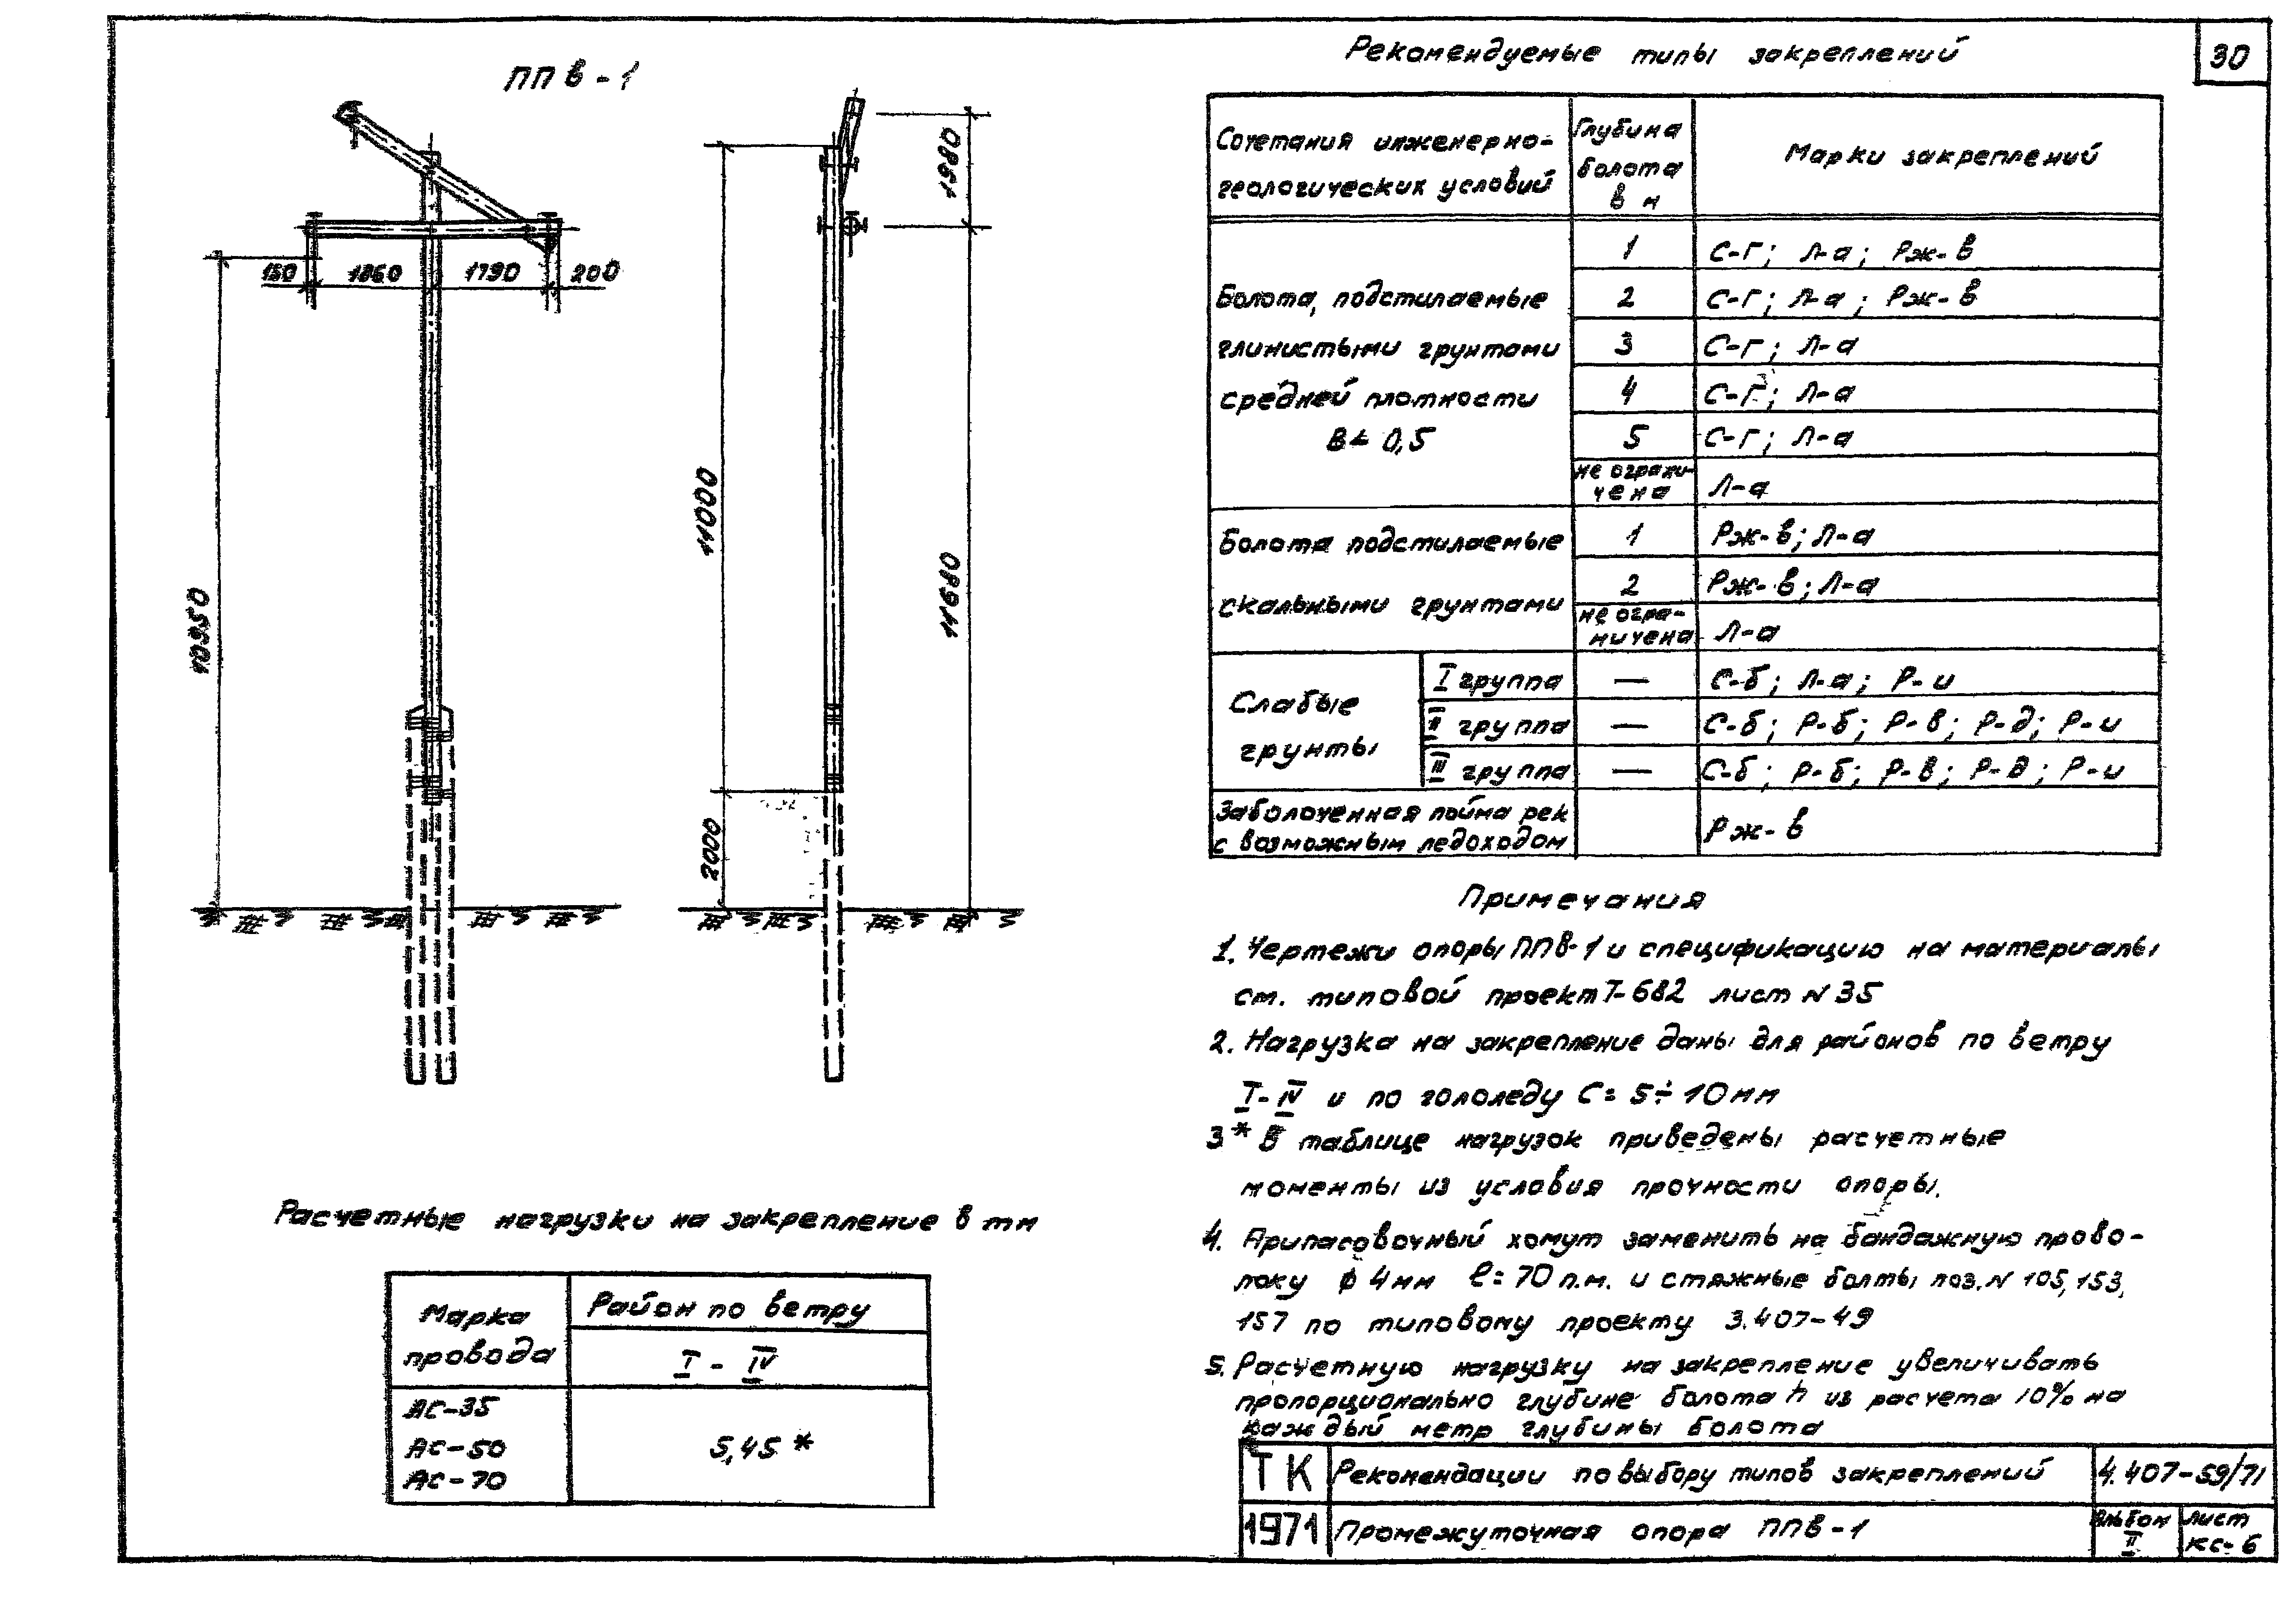 30
ППв-1
150 1860 1790 200
10950
11000
2000
1980
11680
Расчетные нагрузки на закрепление в тм
Марка провода
Район по ветру
I - IV
АС-35
АС-50
АС-70
5,45*
Рекомендуемые типы закреплений
Сочетания инженерно-
геологических условий
Глубина
болота
в м
Марки закреплений
Болота, подстилаемые
глинистыми грунтами
средней плотности
1 С-Г; Л-а; Рж-в
2 С-Г; Л-а; Рж-в
3 С-Г; Л-а
4 С-Г; Л-а
5 С-Г; Л-а
не ограни-
чена
Л-а
Болота подстилаемые
скальными грунтами
1 Рж-в; Л-а
2 Рж-в; Л-а
не огра-
ничена
Л-а
Слабые
грунты
I группа — С-б; Л-а; Р-и
II группа — С-б; Р-б; Р-в; Р-д; Р-и
III группа — С-б; Р-б; Р-в; Р-д; Р-и
Заболоченная пойма рек
с возможным ледоходом
Рж-в
Примечания
1. Чертежи опоры ППв-1 и спецификацию на материалы
см. типовой проект Т-682 лист N 35
2. Нагрузка на закрепление даны для районов по ветру
I-IV и по гололеду С=5÷10мм
3* В таблице нагрузок приведены расчетные
моменты из условия прочности опоры.
4. Припасовочный хомут заменить на бандажную прово-
локу ф 4мм ℓ=70 п.м. и стяжные болты поз. N 105, 153,
157 по типовому проекту 3.407-49
5. Расчетную нагрузку на закрепление увеличивать
пропорционально глубине болота h из расчета 10% на
каждый метр глубины болота
ТК Рекомендации по выбору типов закреплений 4.407-59/71
1971 Промежуточная опора ППв-1
Альбом
II
лист
КС-6